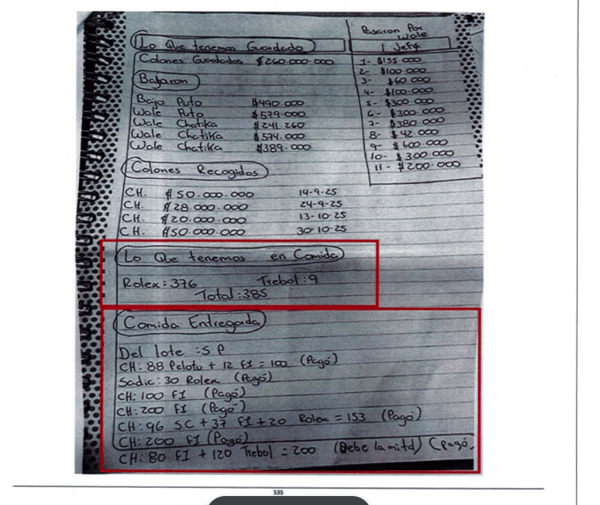 Lo Que tenemos Guardado
Colones Guardados ₡260.000.000
Bajaron
Bayo Puto ₡490.000
Wale Puto ₡579.000
Wale Chatika ₡241.260
Wale Chatika ₡574.000
Wale Chatika ₡389.000
Pasaron Por
Wale
1 Jefa
1- $155.000
2- $100.000
3- $60.000
4- $100.000
5- $300.000
6- $300.000
7- $380.000
8- $42.000
9- $600.000
10- $300.000
11- $200.000
Colones Recogidos
CH. ₡50.000.000 14-9-25
CH. ₡28.000.000 24-9-25
CH. ₡20.000.000 13-10-25
CH. ₡50.000.000 30-10-25
Lo Que tenemos en Comida
Rolex: 376 Trebol: 9
Total: 385
Comida Entregada
Del lote: S P
CH: 88 Pelotu + 12 F1 = 100 (Pagó)
Sadic: 30 Rolex (Pagó)
CH: 100 F1 (Pagó)
CH: 200 F1 (Pagó)
CH: 96 S.C + 37 F1 + 20 Rolex = 153 (Pagó)
CH: 200 F1 (Pagó)
CH: 80 F1 + 120 Trebol = 200 (Debe la mitd) (Pagó.
535